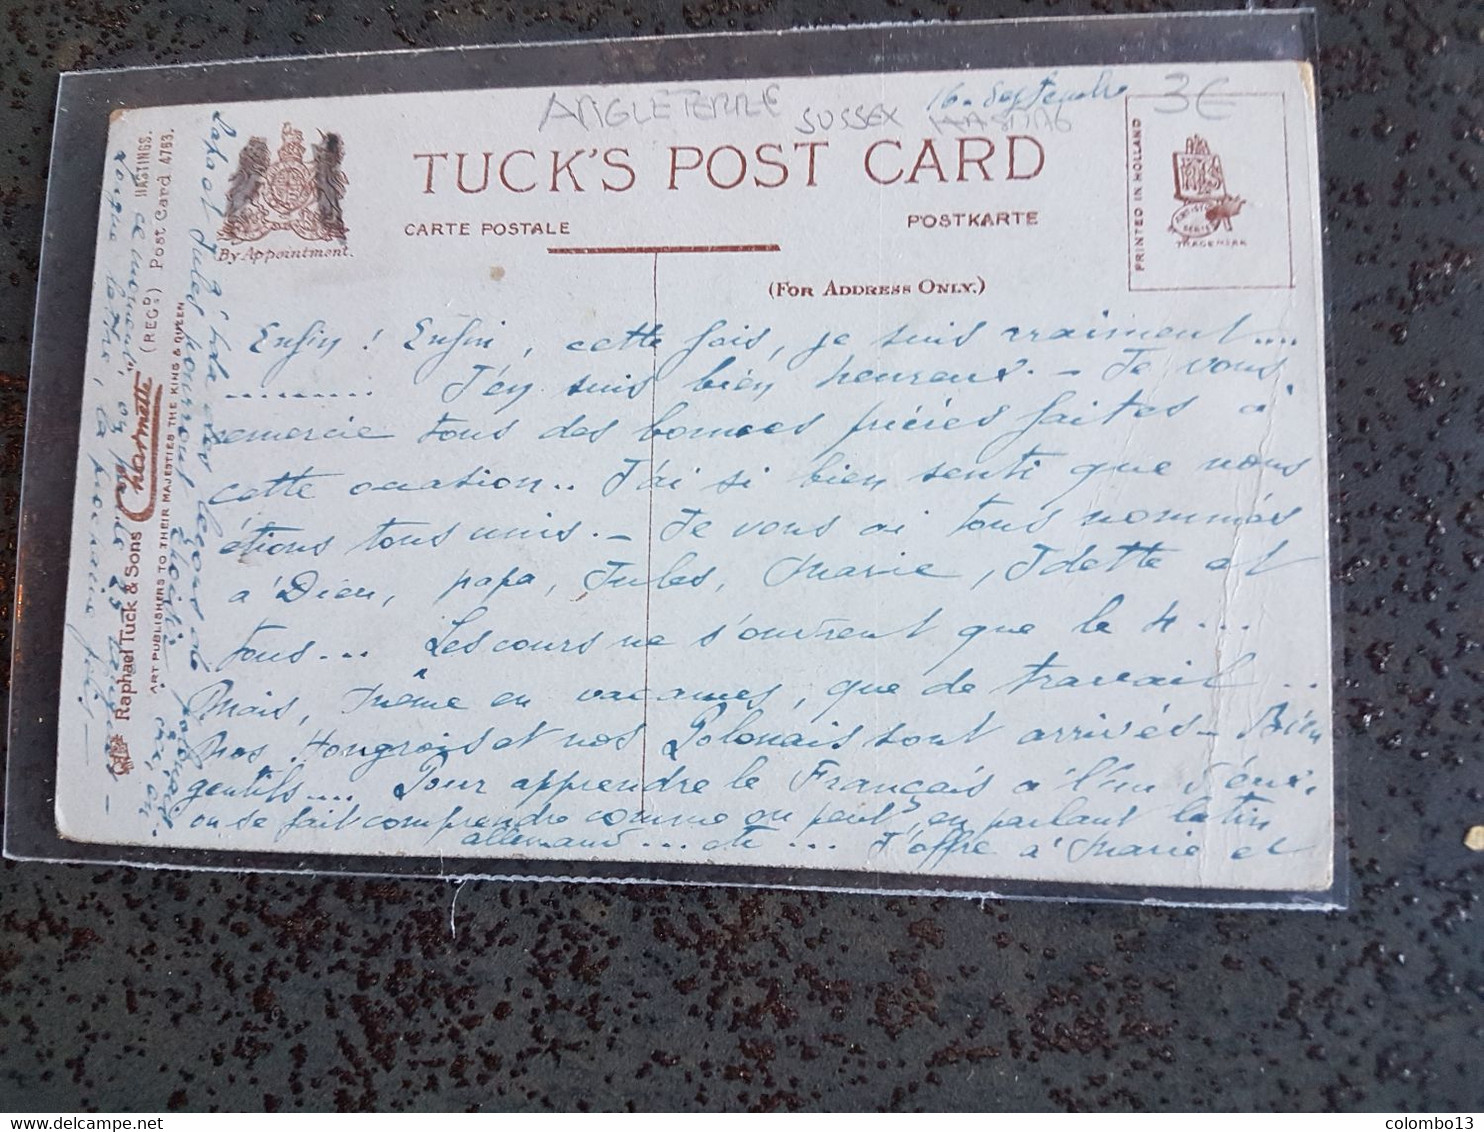 ANGLETERRE
SUSSEX HASTING
16. Septembre
3€
TUCK'S POST CARD
CARTE POSTALE
POSTKARTE
(FOR ADDRESS ONLY.)
PRINTED IN HOLLAND
TRADEMARK
By Appointment.
Enfin! Enfin, cette fois, je suis vraiment....
.......... J'en suis bien heureux. - Je vous
remercie tous des bonnes prières faites à
cette occasion.. J'ai si bien senti que nous
étions tous unis. - Je vous ai tous nommés
à Dieu, papa, Jules, Marie, Odette et
tous... Les cours ne s'ouvrent que le 4...
Mais, même en vacances, que de travail..
Nos Hongrois et nos Polonais sont arrivés - Bien
gentils... Pour apprendre le Français à l'un d'eux,
on se fait comprendre comme on peut, en parlant latin
allemand... etc... J'offre à Marie et
HASTINGS.
(REGD) Post Card 4763.
"Charmette"
Raphael Tuck & Sons
ART PUBLISHERS TO THEIR MAJESTIES THE KING & QUEEN
ce moment, on parle
longue lettre, la prochaine fois -
colombo13